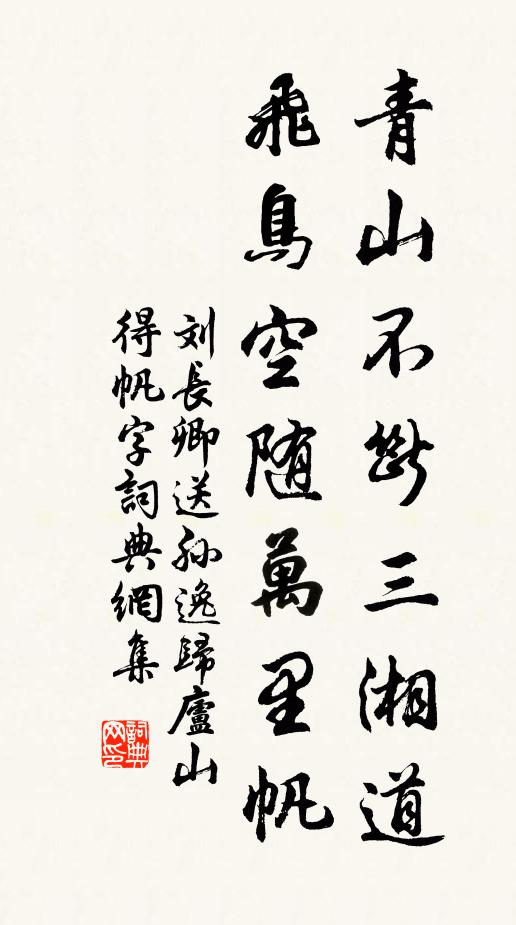 青山不斷三湘道
飛鳥空隨萬里帆
刘長卿送孙逸歸廬山
得帆字詞典網集
詞典
网印